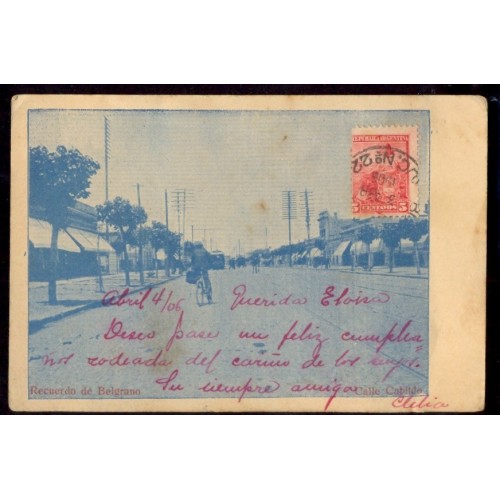 REPUBLICA ARGENTINA
SUC. Nº 22
5 CENTAVOS 5
Abril 4/06 Querida Eloisa
Deseo pase un feliz cumplea
ños rodeada del cariño de los suyos.
Su siempre amiga
Clelia
Recuerdo de Belgrano
Calle Cabildo